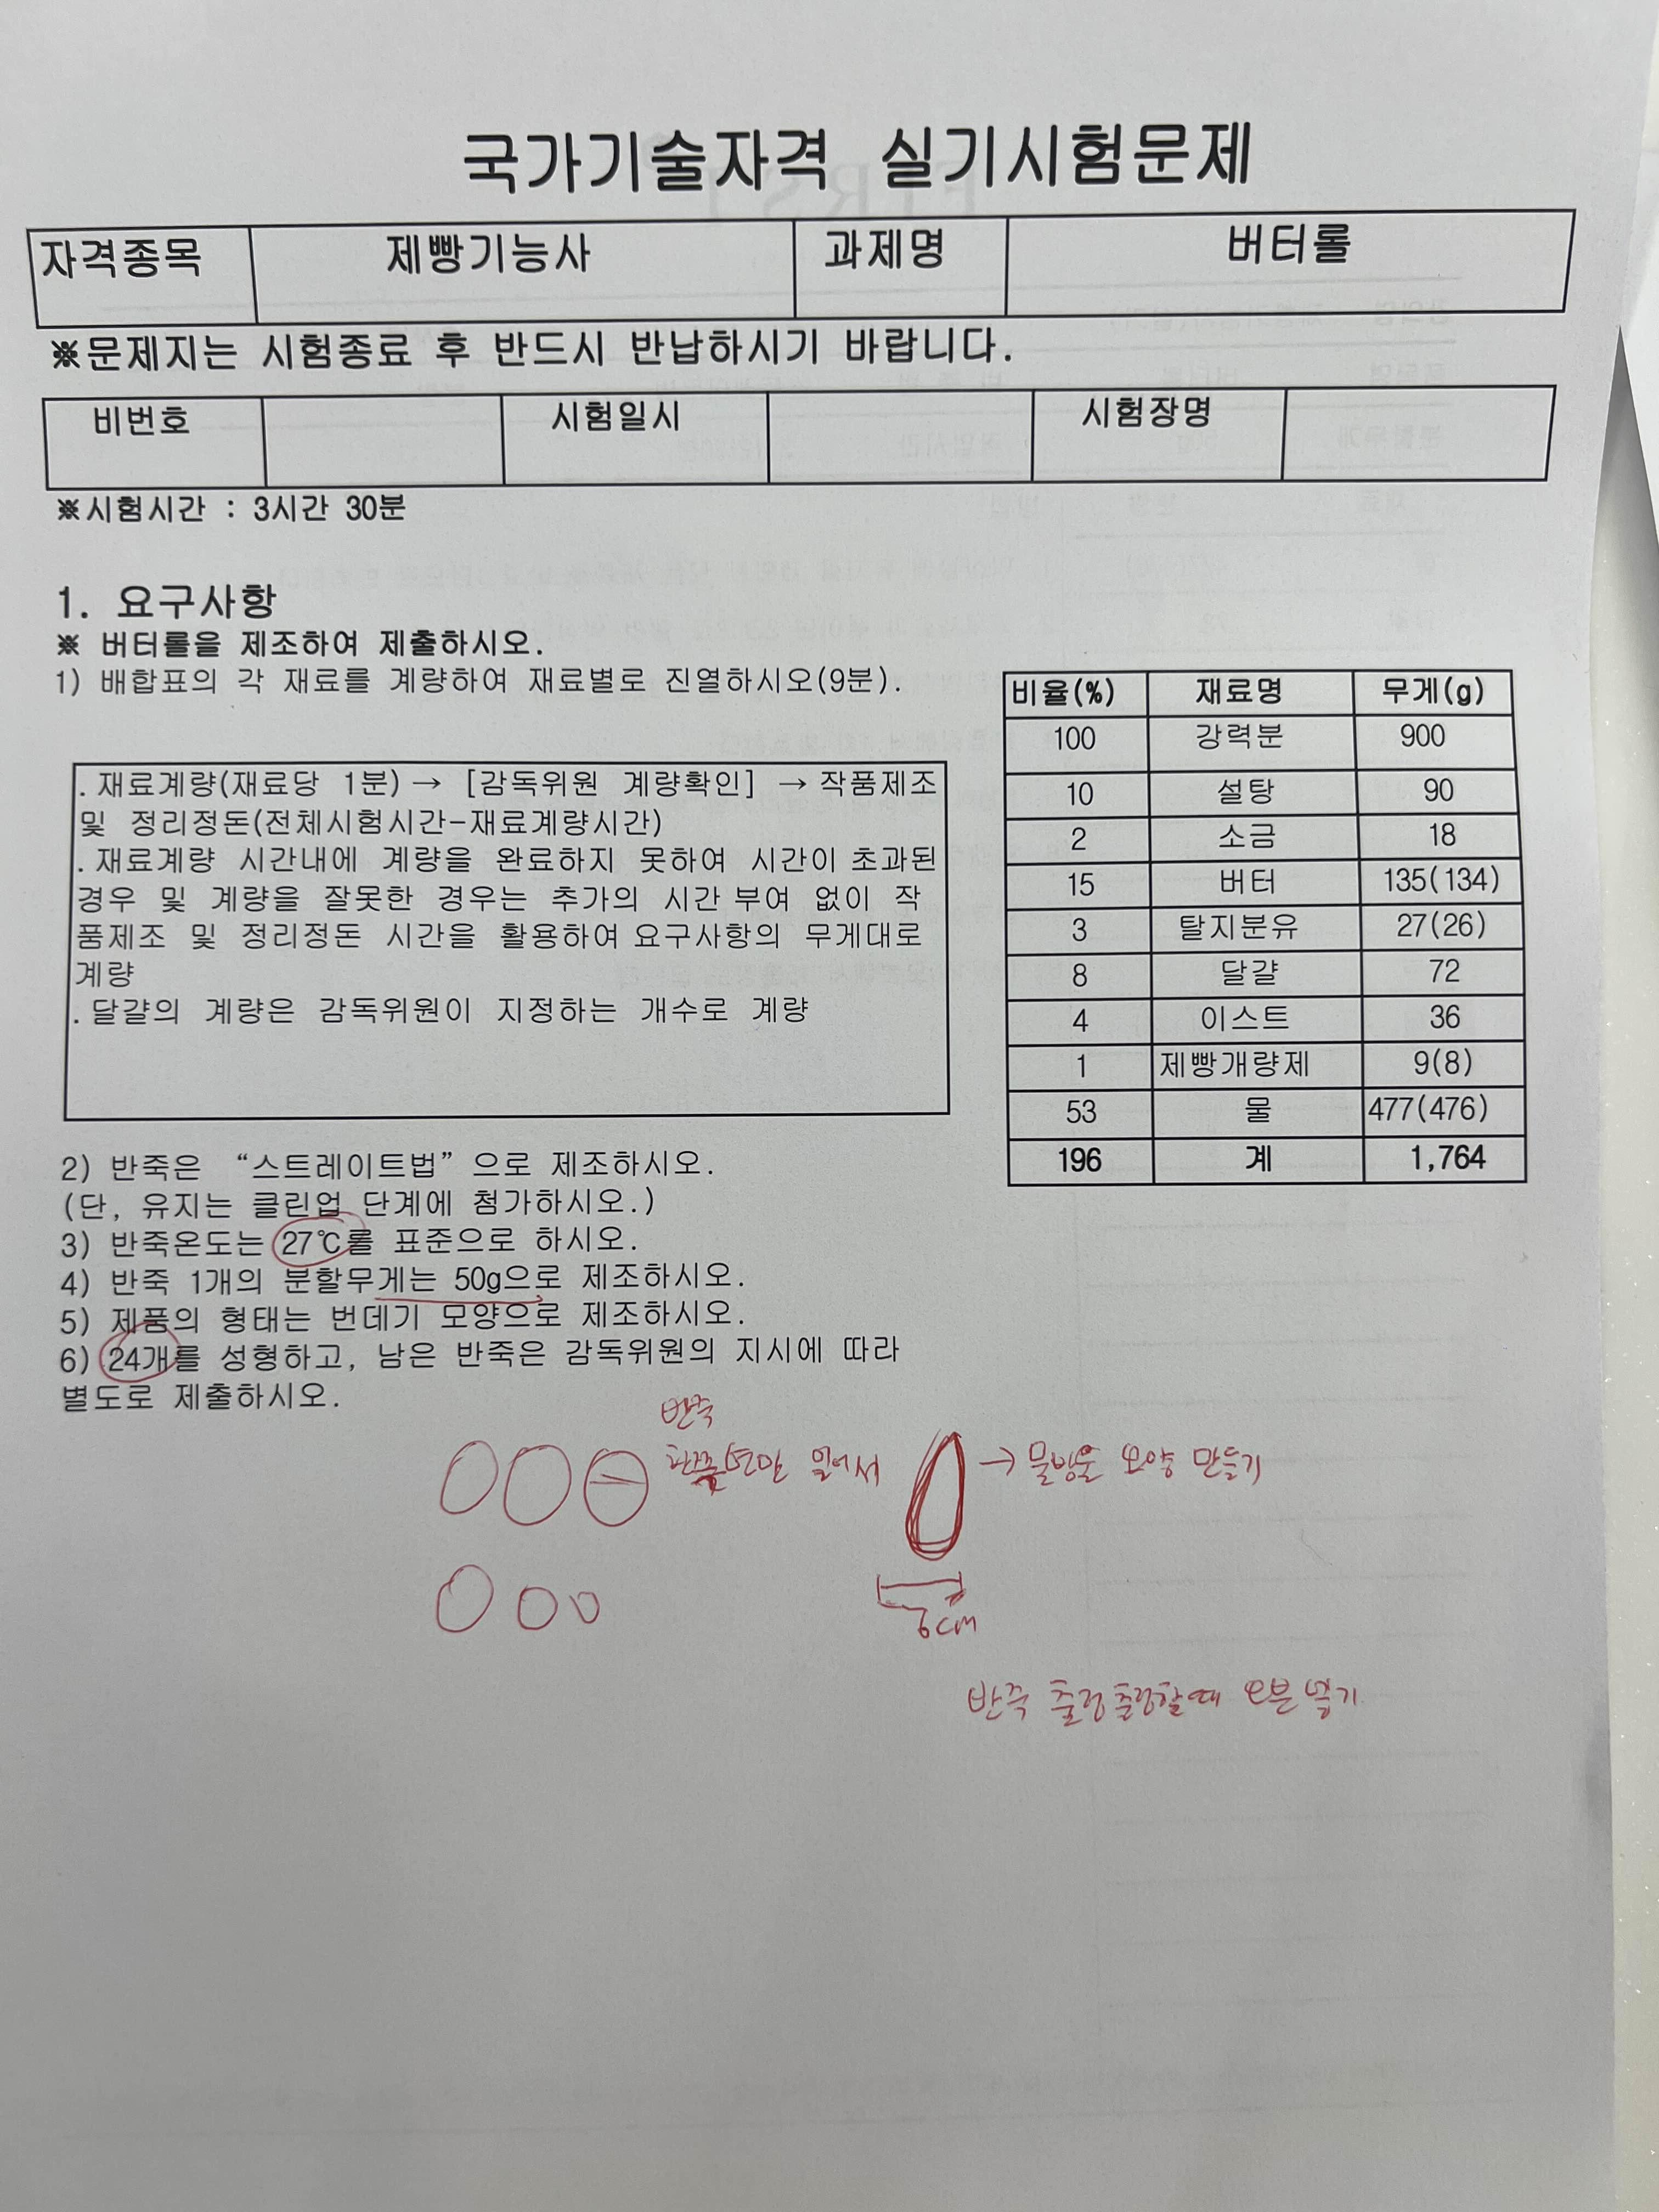 국가기술자격 실기시험문제
자격종목 제빵기능사 과제명 버터롤
※문제지는 시험종료 후 반드시 반납하시기 바랍니다.
비번호 시험일시 시험장명
※시험시간 : 3시간 30분
1. 요구사항
※ 버터롤을 제조하여 제출하시오.
1) 배합표의 각 재료를 계량하여 재료별로 진열하시오(9분).
. 재료계량(재료당 1분)→ [감독위원 계량확인] →작품제조
및 정리정돈(전체시험시간-재료계량시간)
. 재료계량 시간내에 계량을 완료하지 못하여 시간이 초과된
경우 및 계량을 잘못한 경우는 추가의 시간 부여 없이 작
품제조 및 정리정돈 시간을 활용하여 요구사항의 무게대로
계량
. 달걀의 계량은 감독위원이 지정하는 개수로 계량
비율(%) 재료명 무게(g)
100 강력분 900
10 설탕 90
2 소금 18
15 버터 135(134)
3 탈지분유 27(26)
8 달걀 72
4 이스트 36
1 제빵개량제 9(8)
53 물 477(476)
196 계 1,764
2) 반죽은 “스트레이트법”으로 제조하시오.
(단, 유지는 클린업 단계에 첨가하시오.)
3) 반죽온도는 27℃를 표준으로 하시오.
4) 반죽 1개의 분할무게는 50g으로 제조하시오.
5) 제품의 형태는 번데기 모양으로 제조하시오.
6) 24개를 성형하고, 남은 반죽은 감독위원의 지시에 따라
별도로 제출하시오.
반죽
밀어서 → 물방울 모양 만들기
6cm
반죽 출렁출렁할때 오븐넣기